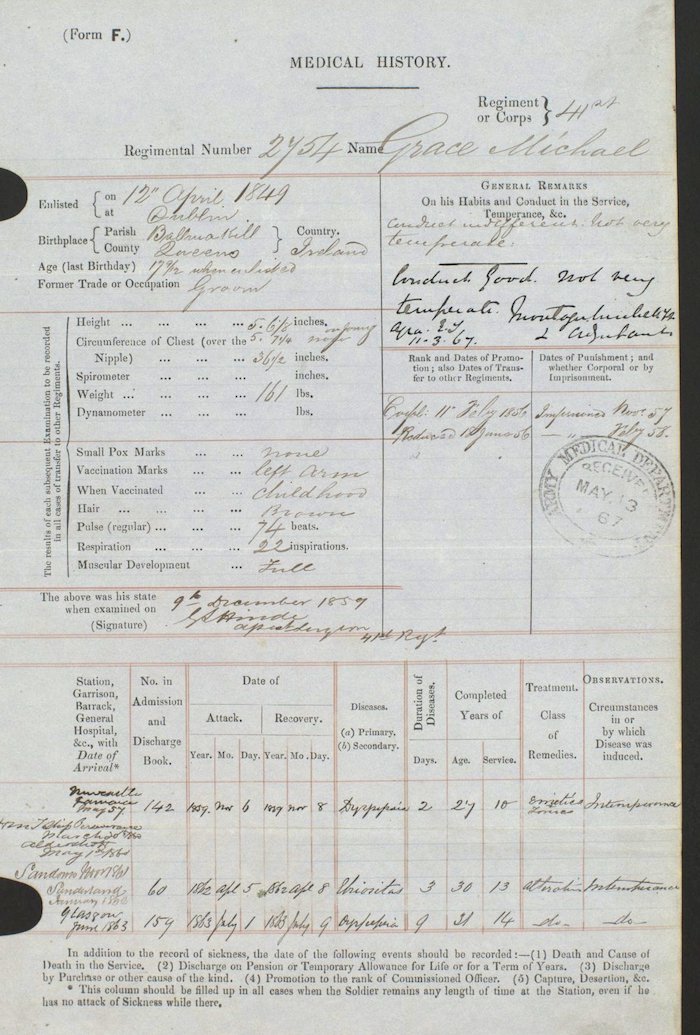 (Form F.)
MEDICAL HISTORY.
Regiment or Corps } 41st
Regimental Number 2754 Name Grace Michael
Enlisted { on 12" April 1849
at Dublin
Birthplace { Parish Ballinakill } Country.
County Queens } Ireland
Age (last Birthday) 17 3/12 when enlisted
Former Trade or Occupation Groom
GENERAL REMARKS
On his Habits and Conduct in the Service,
Temperance, &c.
Conduct indifferent. Not very
temperate.
Conduct Good. Not very
temperate.
11-3-67. Adjutant
The results of each subsequent Examination to be recorded
in all cases of transfer to other Regiments.
Height ... ... ... ... 5. 6 1/8 inches.
Circumference of Chest (over the
Nipple) ... ... ... 36 1/2 inches.
Spirometer ... ... ... inches.
Weight ... ... ... ... 161 lbs.
Dynamometer ... ... lbs.
Small Pox Marks ... ... none
Vaccination Marks ... ... left arm
When Vaccinated ... ... childhood
Hair ... ... ... ... Brown
Pulse (regular) ... ... ... 74 beats.
Respiration ... ... ... 22 inspirations.
Muscular Development ... Full
Rank and Dates of Promo-
tion; also Dates of Trans-
fer to other Regiments.
Corpl. 11" Feby 1856
Reduced 56
Dates of Punishment; and
whether Corporal or by
Imprisonment.
Imprisoned Novr. 57
— " — Feby 58.
ARMY MEDICAL DEPARTMENT
RECEIVED
MAY 13
67
The above was his state
when examined on 9th December 1859
(Signature)
41st Regt.
Station,
Garrison,
Barrack,
General
Hospital,
&c., with
Date of
Arrival*
No. in
Admission
and
Discharge
Book.
Date of
Attack. Recovery.
Year. Mo. Day. Year. Mo. Day.
Diseases.
(a) Primary.
(b) Secondary.
Duration of
Diseases.
Days.
Completed
Years of
Age. Service.
Treatment.
Class
of
Remedies.
OBSERVATIONS.
Circumstances
in or
by which
Disease was
induced.
Newcastle
Jamaica
May 57 142 1859 Nov 6 1859 Nov 8 Dyspepsia 2 27 10 Emetics Tonics Intemperance
Aldershott
May 1st 1860
Sunderland
January 1862 60 1862 apl 5 1862 apl 8 Ebriositas 3 30 13 Intemperance
Glasgow
June 1863 159 1863 July 1 1863 July 9 Dyspepsia 9 31 14 —do— —do—
In addition to the record of sickness, the date of the following events should be recorded:—(1) Death and Cause of
Death in the Service. (2) Discharge on Pension or Temporary Allowance for Life or for a Term of Years. (3) Discharge
by Purchase or other cause of the kind. (4) Promotion to the rank of Commissioned Officer. (5) Capture, Desertion, &c.
* This column should be filled up in all cases when the Soldier remains any length of time at the Station, even if he
has no attack of Sickness while there.